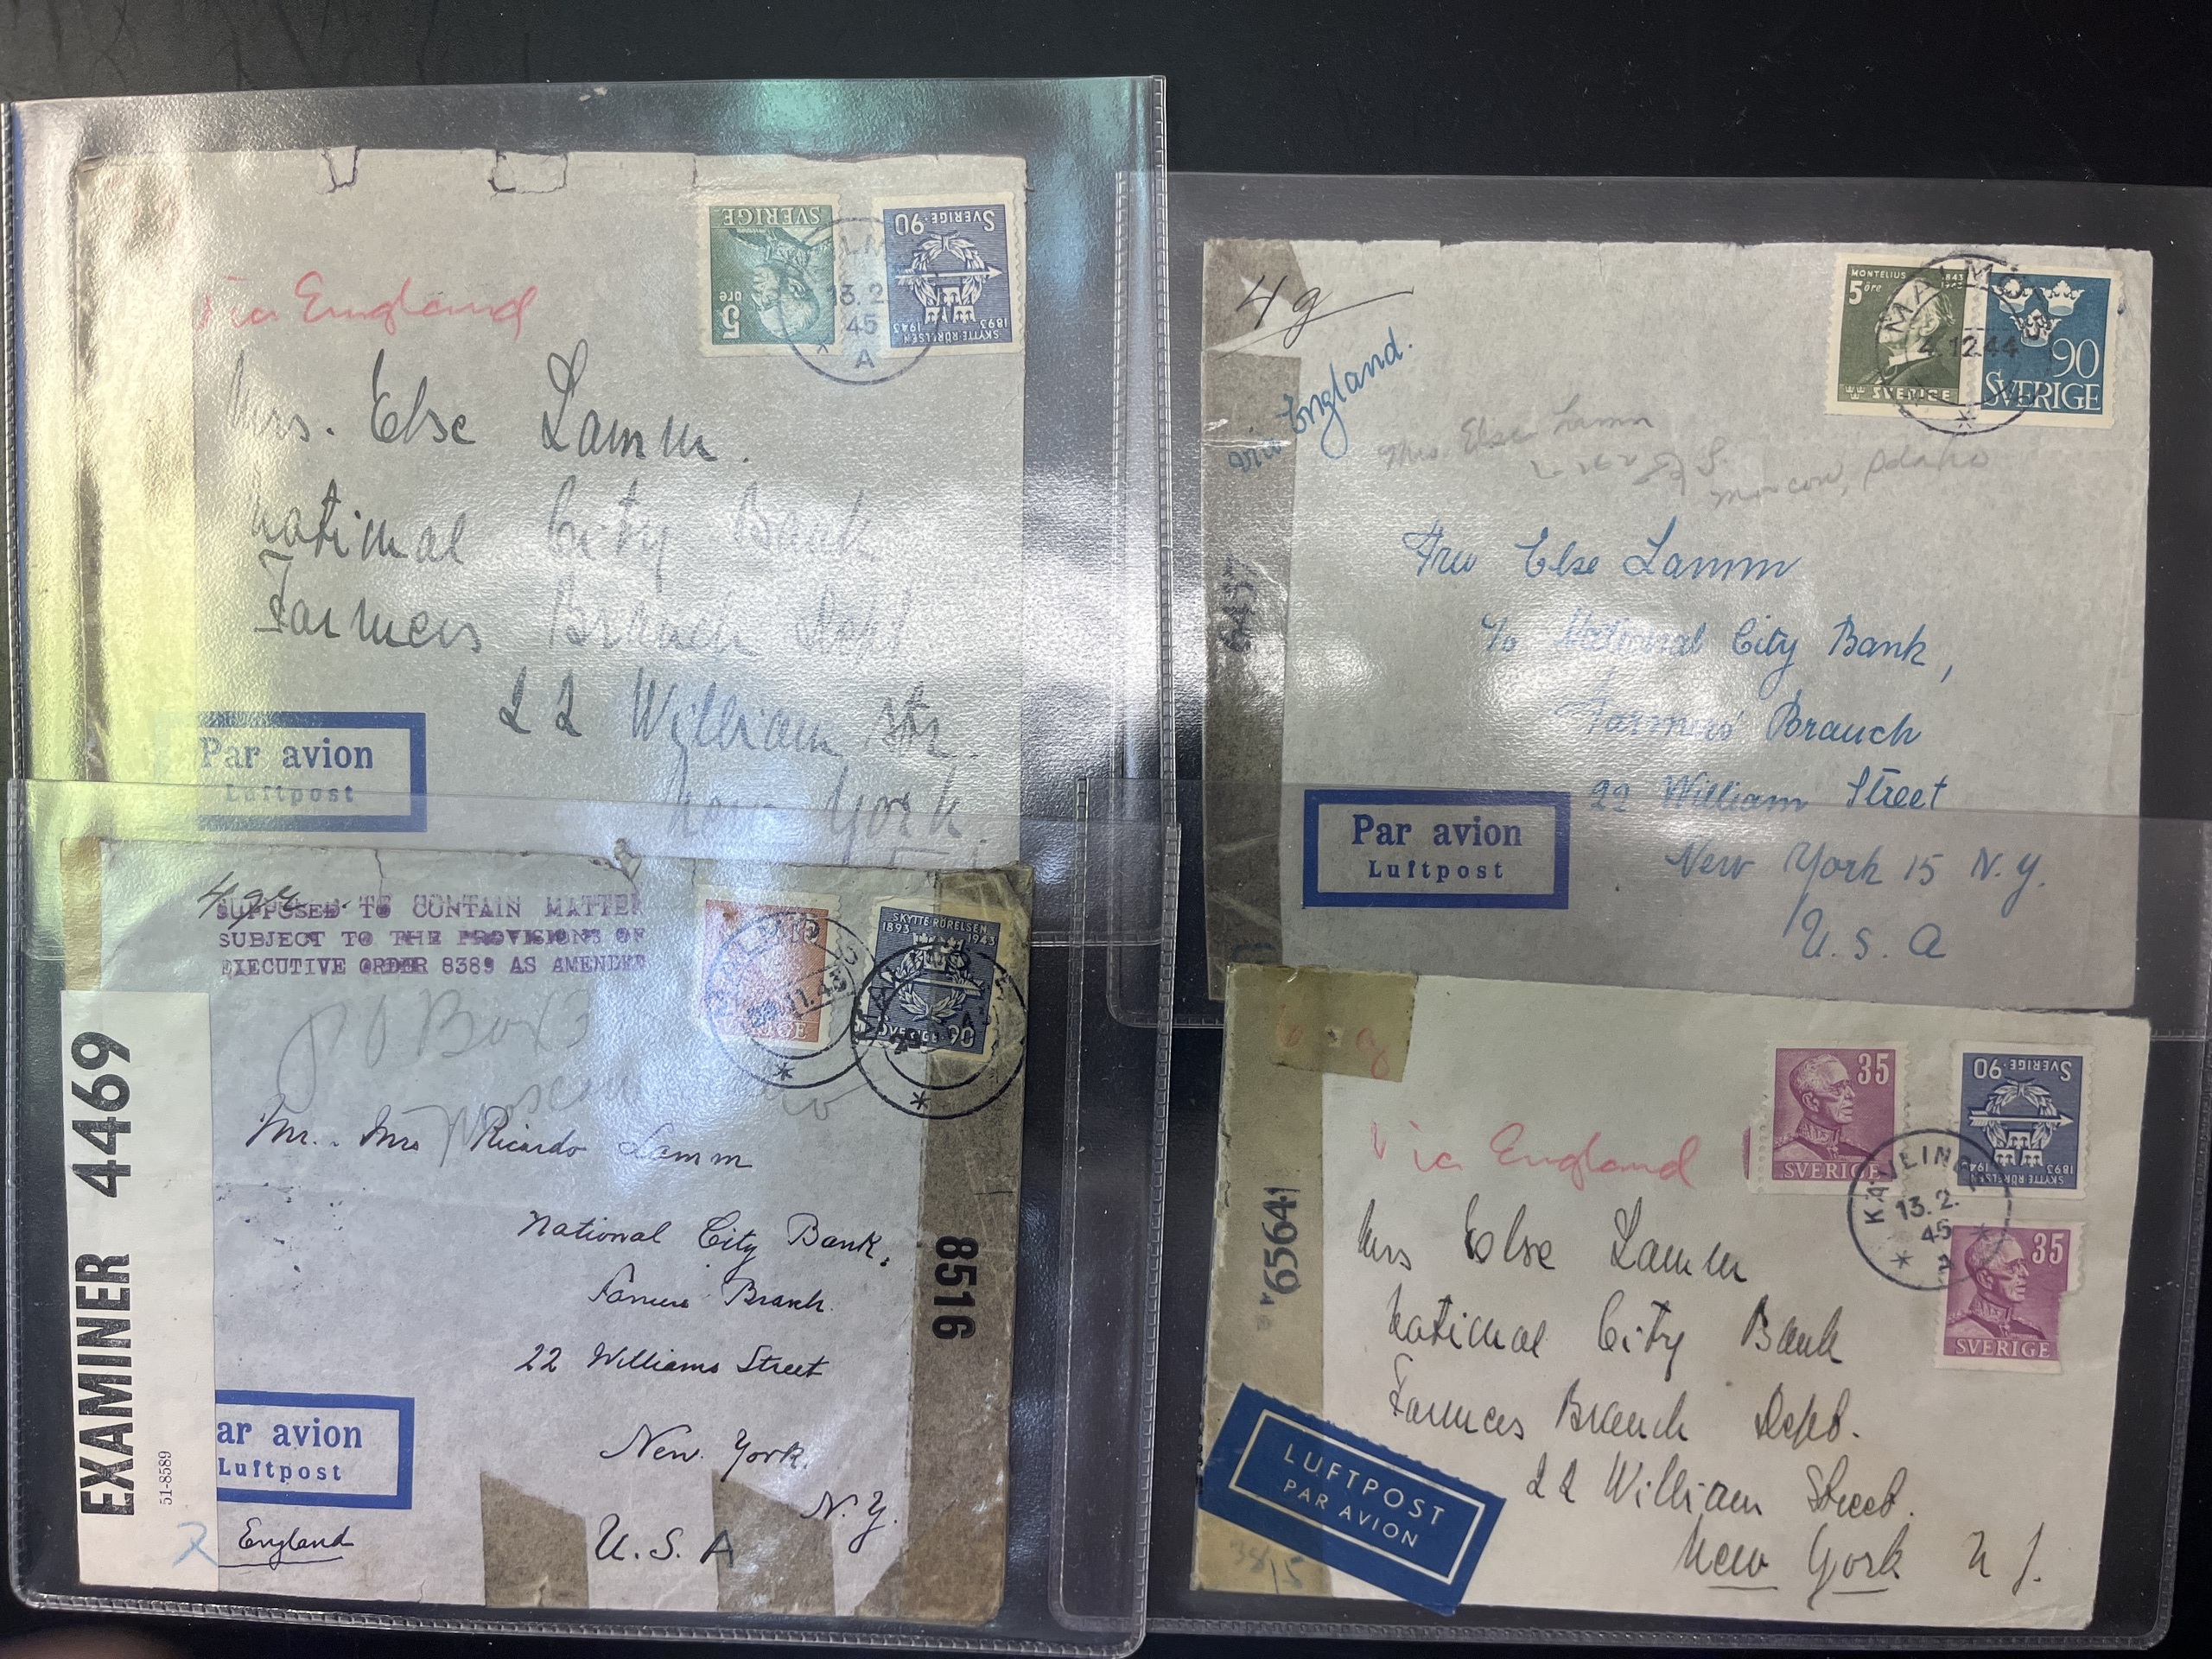 SVERIGE
5
öre
SVERIGE·90
SKYTTE RÖRELSEN
1893 1943
13.2
45
A
Via England
Mrs. Else Lamm.
National City Bank
Farmers Branch Dept
22 William Str.
New York.
Par avion
Luftpost
4g
via England.
MONTELIUS 1843
5 öre
SVERIGE
90
SVERIGE
MALMÖ
4.12.44
Mrs. Else Lamm
Moscow, Idaho
Fru Else Lamm
c/o National City Bank,
Farmers' Branch
22 William Street
New York 15 N.Y.
U.S.A
6457
Par avion
Luftpost
4gr.
SUPPOSED TO CONTAIN MATTER
SUBJECT TO THE PROVISIONS OF
EXECUTIVE ORDER 8389 AS AMENDED
SKYTTE RÖRELSEN
1893 1943
SVERIGE 90
P O Box
Mr. Mrs Ricardo Lamm
National City Bank,
Farmers Branch.
22 Williams Street
New. York.
N.Y.
U.S.A
EXAMINER 4469
51-8589
8516
ar avion
Luftpost
England
35
SVERIGE
SVERIGE·90
SKYTTE RÖRELSEN
1893 1943
13.2.
45
35
SVERIGE
Via England
Mrs Else Lamm
National City Bank
Farmers Branch Dept.
22 William Street.
New York N Y.
6564
LUFTPOST
PAR AVION
38/5